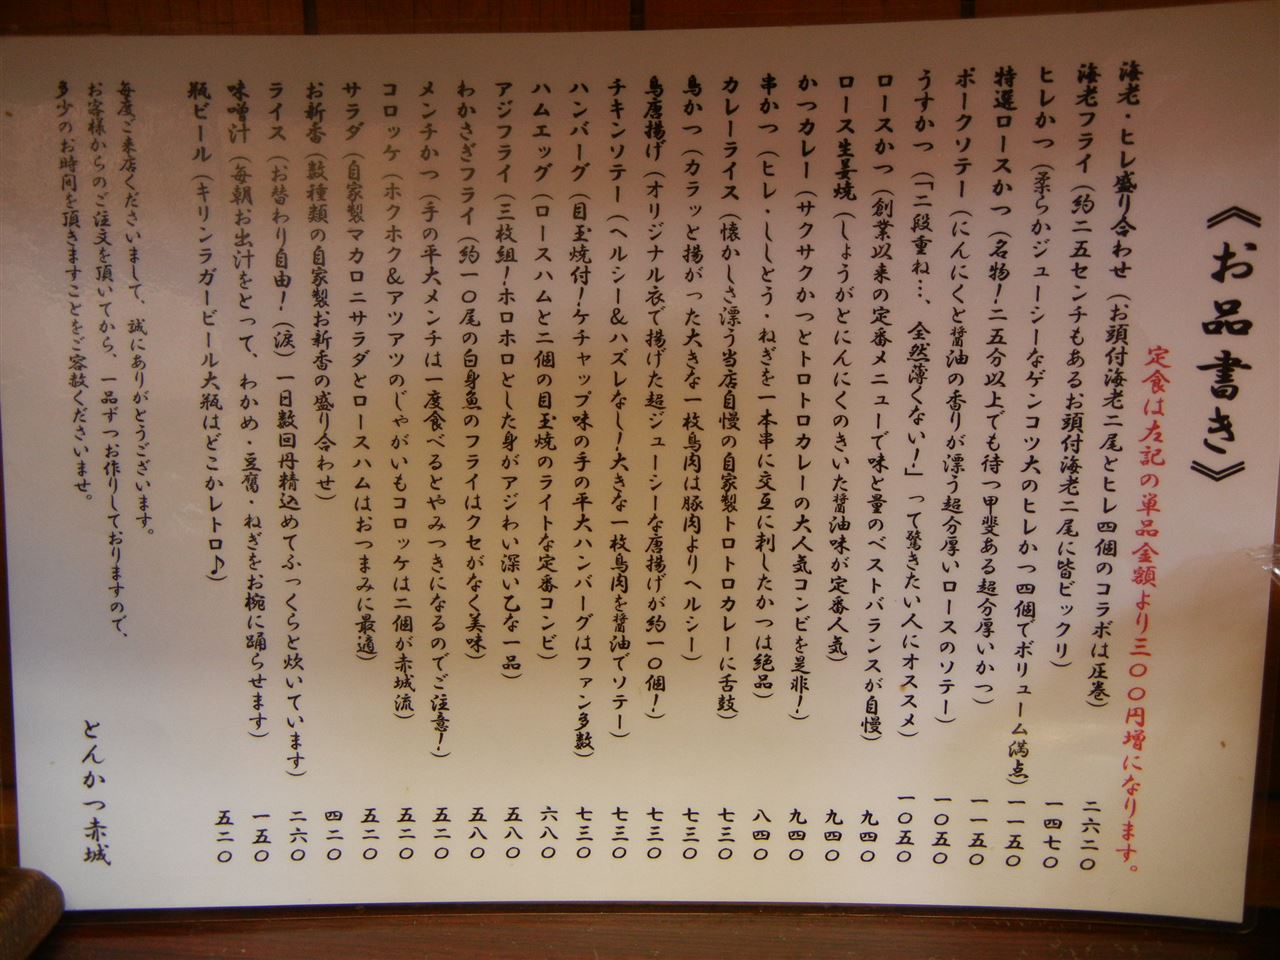 《お品書き》
定食は左記の単品金額より三〇〇円増になります。
海老・ヒレ盛り合わせ（お頭付海老二尾とヒレ四個のコラボは圧巻）　二六二〇
海老フライ（約二五センチもあるお頭付海老二尾に皆ビックリ）　一四七〇
ヒレかつ（柔らかジューシーなゲンコツ大のヒレかつ四個でボリューム満点）　一一五〇
特選ロースかつ（名物！二五分以上でも待つ甲斐ある超分厚いかつ）　一一五〇
ポークソテー（にんにくと醤油の香りが漂う超分厚いロースのソテー）　一〇五〇
うすかつ（「二段重ね…、全然薄くない！」って驚きたい人にオススメ）　一〇五〇
ロースかつ（創業以来の定番メニューで味と量のベストバランスが自慢）　九四〇
ロース生姜焼（しょうがとにんにくのきいた醤油味が定番人気）　九四〇
かつカレー（サクサクかつとトロトロカレーの大人気コンビを是非！）　九四〇
串かつ（ヒレ・ししとう・ねぎを一本串に交互に刺したかつは絶品）　八四〇
カレーライス（懐かしさ漂う当店自慢の自家製トロトロカレーに舌鼓）　七三〇
鳥かつ（カラッと揚がった大きな一枚鳥肉は豚肉よりヘルシー）　七三〇
鳥唐揚げ（オリジナル衣で揚げた超ジューシーな唐揚げが約一〇個！）　七三〇
チキンソテー（ヘルシー＆ハズレなし！大きな一枚鳥肉を醤油でソテー）　七三〇
ハンバーグ（目玉焼付！ケチャップ味の手の平大ハンバーグはファン多数）　七三〇
ハムエッグ（ロースハムと二個の目玉焼のライトな定番コンビ）　六八〇
アジフライ（三枚組！ホロホロとした身がアジわい深い乙な一品）　五八〇
わかさぎフライ（約一〇尾の白身魚のフライはクセがなく美味）　五八〇
メンチかつ（手の平大メンチは一度食べるとやみつきになるのでご注意！）　五二〇
コロッケ（ホクホク＆アツアツのじゃがいもコロッケは二個が赤城流）　五二〇
サラダ（自家製マカロニサラダとロースハムはおつまみに最適）　五二〇
お新香（数種類の自家製お新香の盛り合わせ）　四二〇
ライス（お替わり自由！（涙）一日数回丹精込めてふっくらと炊いています）　二六〇
味噌汁（毎朝お出汁をとって、わかめ・豆腐・ねぎをお椀に踊らせます）　一五〇
瓶ビール（キリンラガービール大瓶はどこかレトロ♪）　五二〇
毎度ご来店くださいまして、誠にありがとうございます。
お客様からのご注文を頂いてから、一品ずつお作りしておりますので、
多少のお時間を頂きますことをご容赦くださいませ。
とんかつ赤城